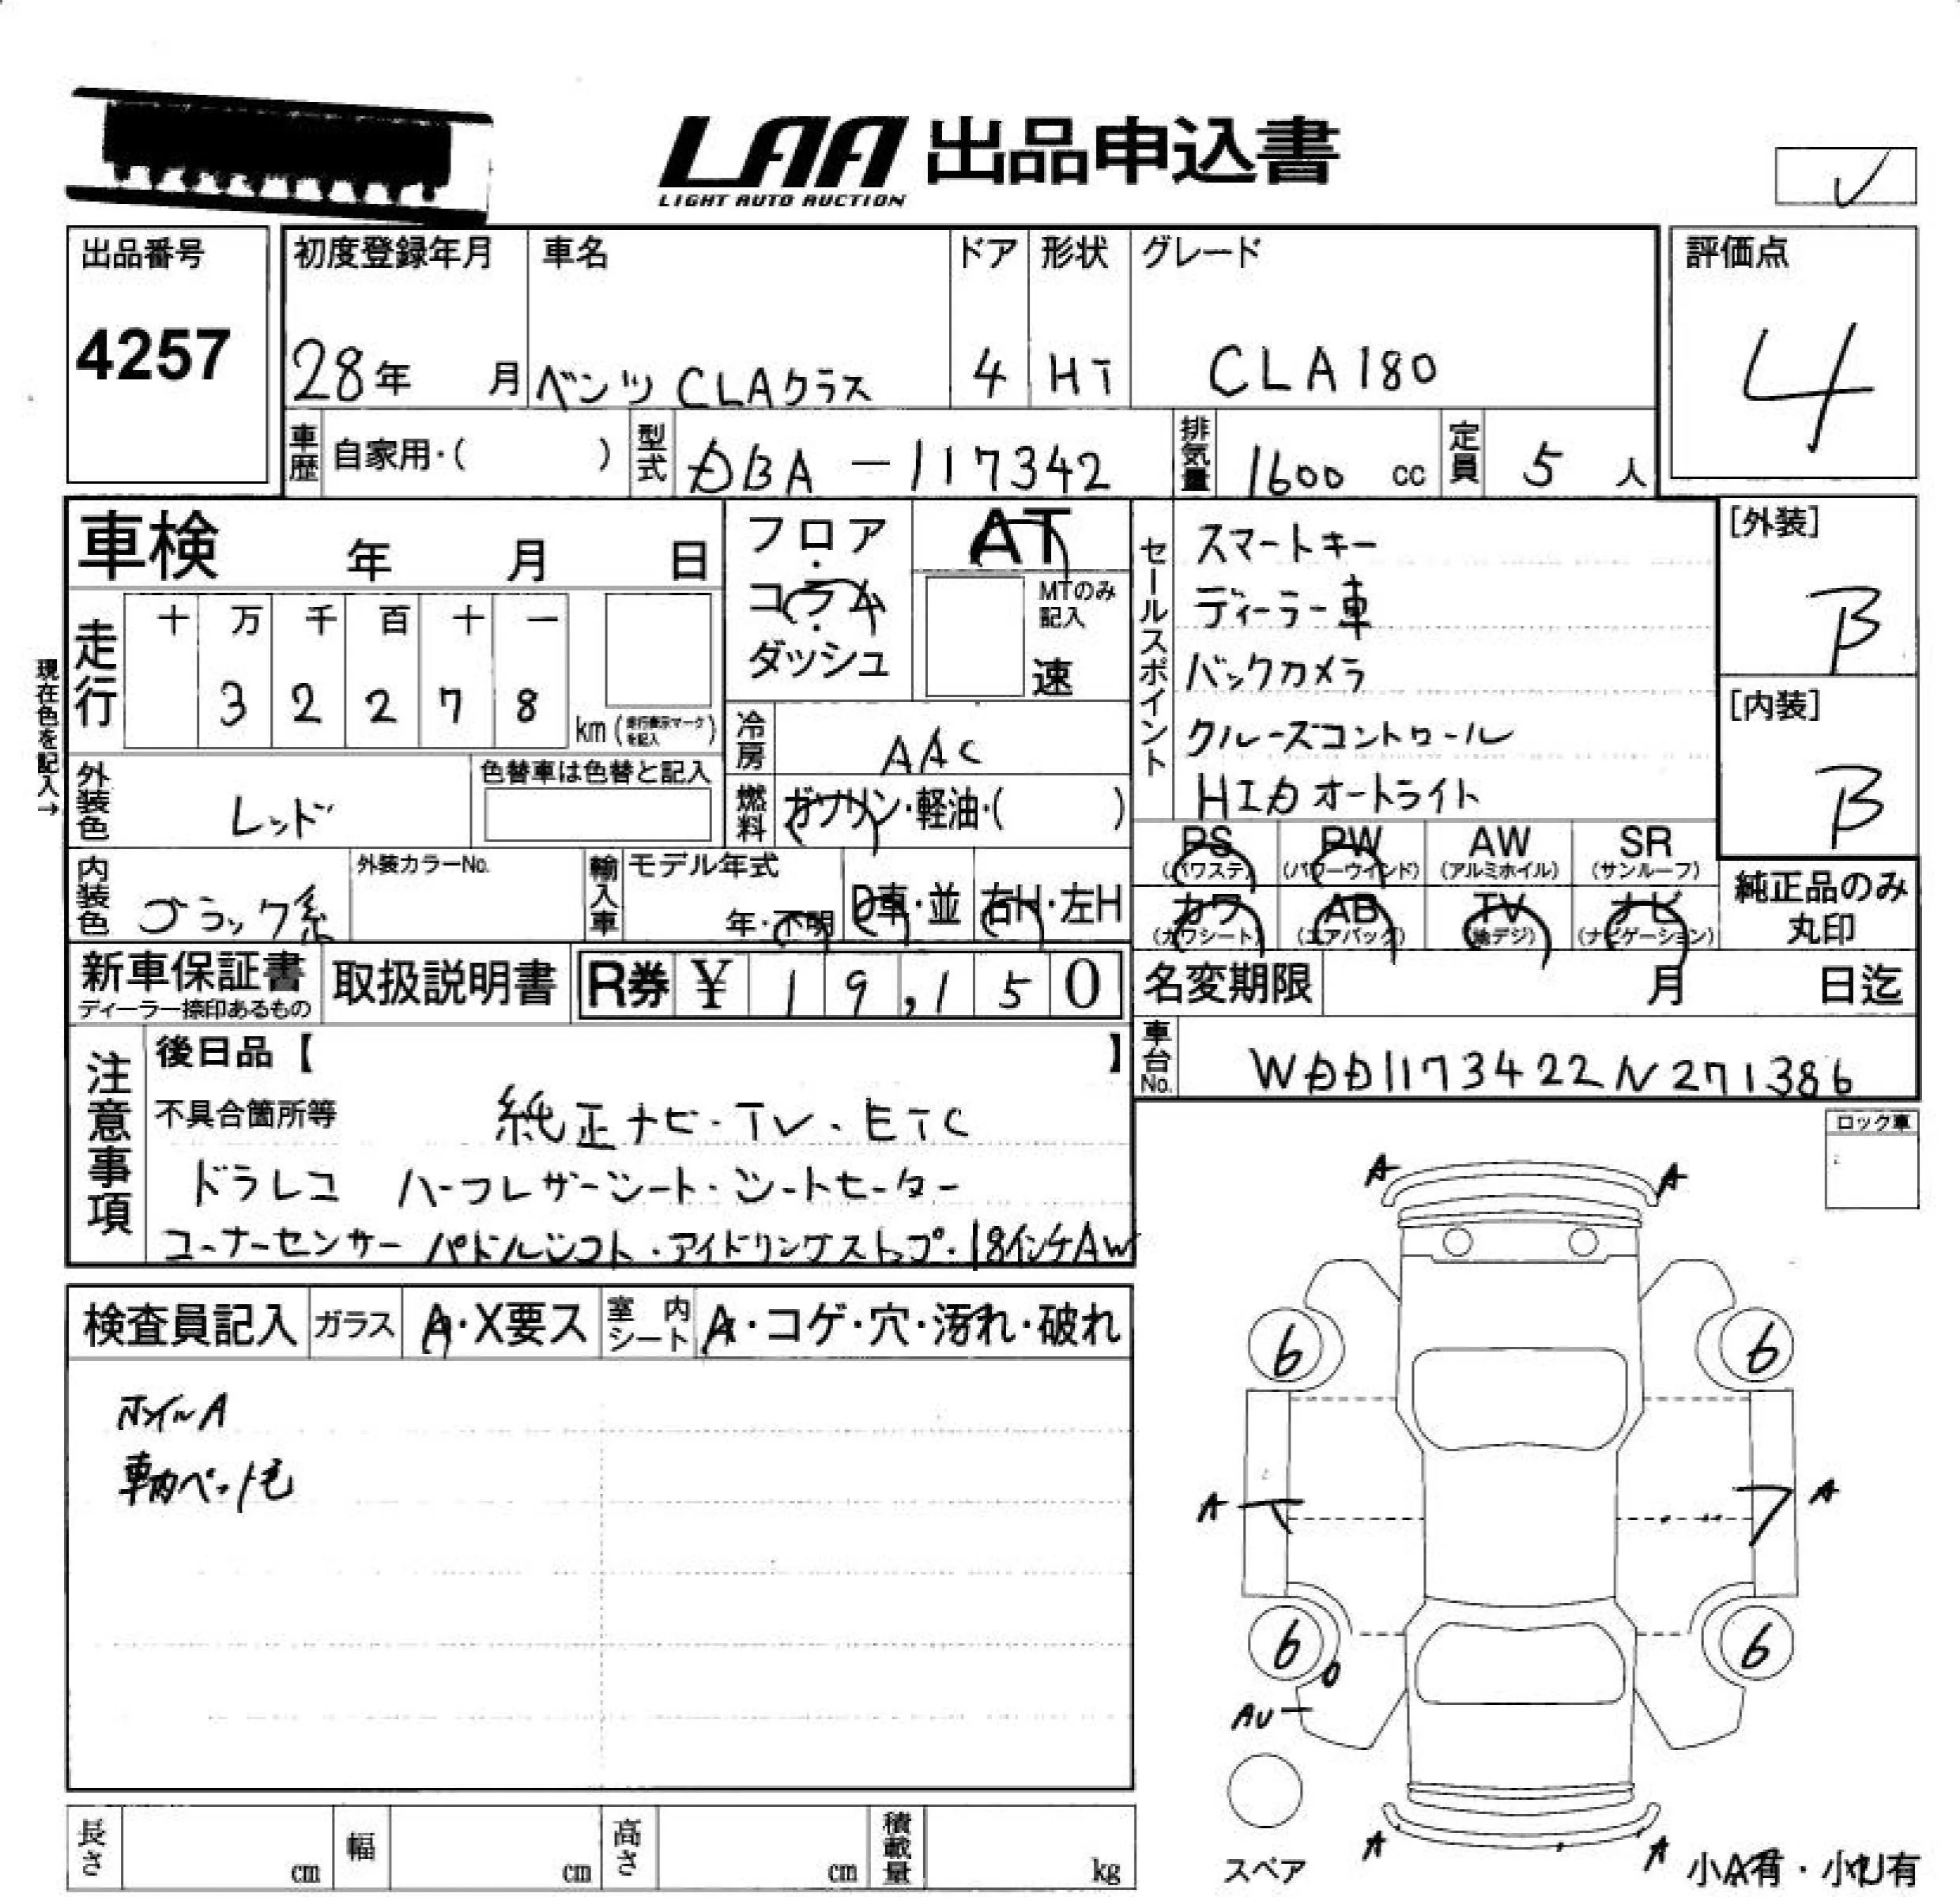 LAA 出品申込書
LIGHT AUTO AUCTION
出品番号
4257
初度登録年月
28年 月
車名
ベンツ CLAクラス
ドア
4
形状
HT
グレード
CLA180
評価点
4
車歴 自家用・( )
型式 DBA-117342
排気量 1600 cc
定員 5 人
車検 年 月 日
現在色を記入→
走行 十 万 千 百 十 一
3 2 2 7 8 km (走行表示マークを記入)
フロア・コラム・ダッシュ
AT
MTのみ記入
速
冷房 AAC
燃料 ガソリン・軽油・( )
外装色 レッド
色替車は色替と記入
内装色 ブラック系
外装カラーNo.
輸入車 モデル年式
年・不明 D車・並 右H・左H
セールスポイント
スマートキー
ディーラー車
バックカメラ
クルーズコントロール
HIDオートライト
[外装]
B
[内装]
B
PS (パワステ) PW (パワーウインド) AW (アルミホイル) SR (サンルーフ)
カワ (カワシート) AB (エアバッグ) TV (地デジ) ナビ (ナビゲーション)
純正品のみ丸印
新車保証書
ディーラー捺印あるもの
取扱説明書
R券 ¥ 19,150
名変期限 月 日迄
車台No. WDD1173422N271386
注意事項
後日品【 】
不具合箇所等 純正ナビ・TV・ETC
ドラレコ ハーフレザーシート・シートヒーター
コーナーセンサー パドルシフト・アイドリングストップ・18インチAW
ロック車
検査員記入 ガラス A・X要ス 室内シート A・コゲ・穴・汚れ・破れ
ホイルA
車内ペット毛
A A
6 6
A A
6 6
AU
スペア
A A
小A有・小U有
長さ cm 幅 cm 高さ cm 積載量 kg